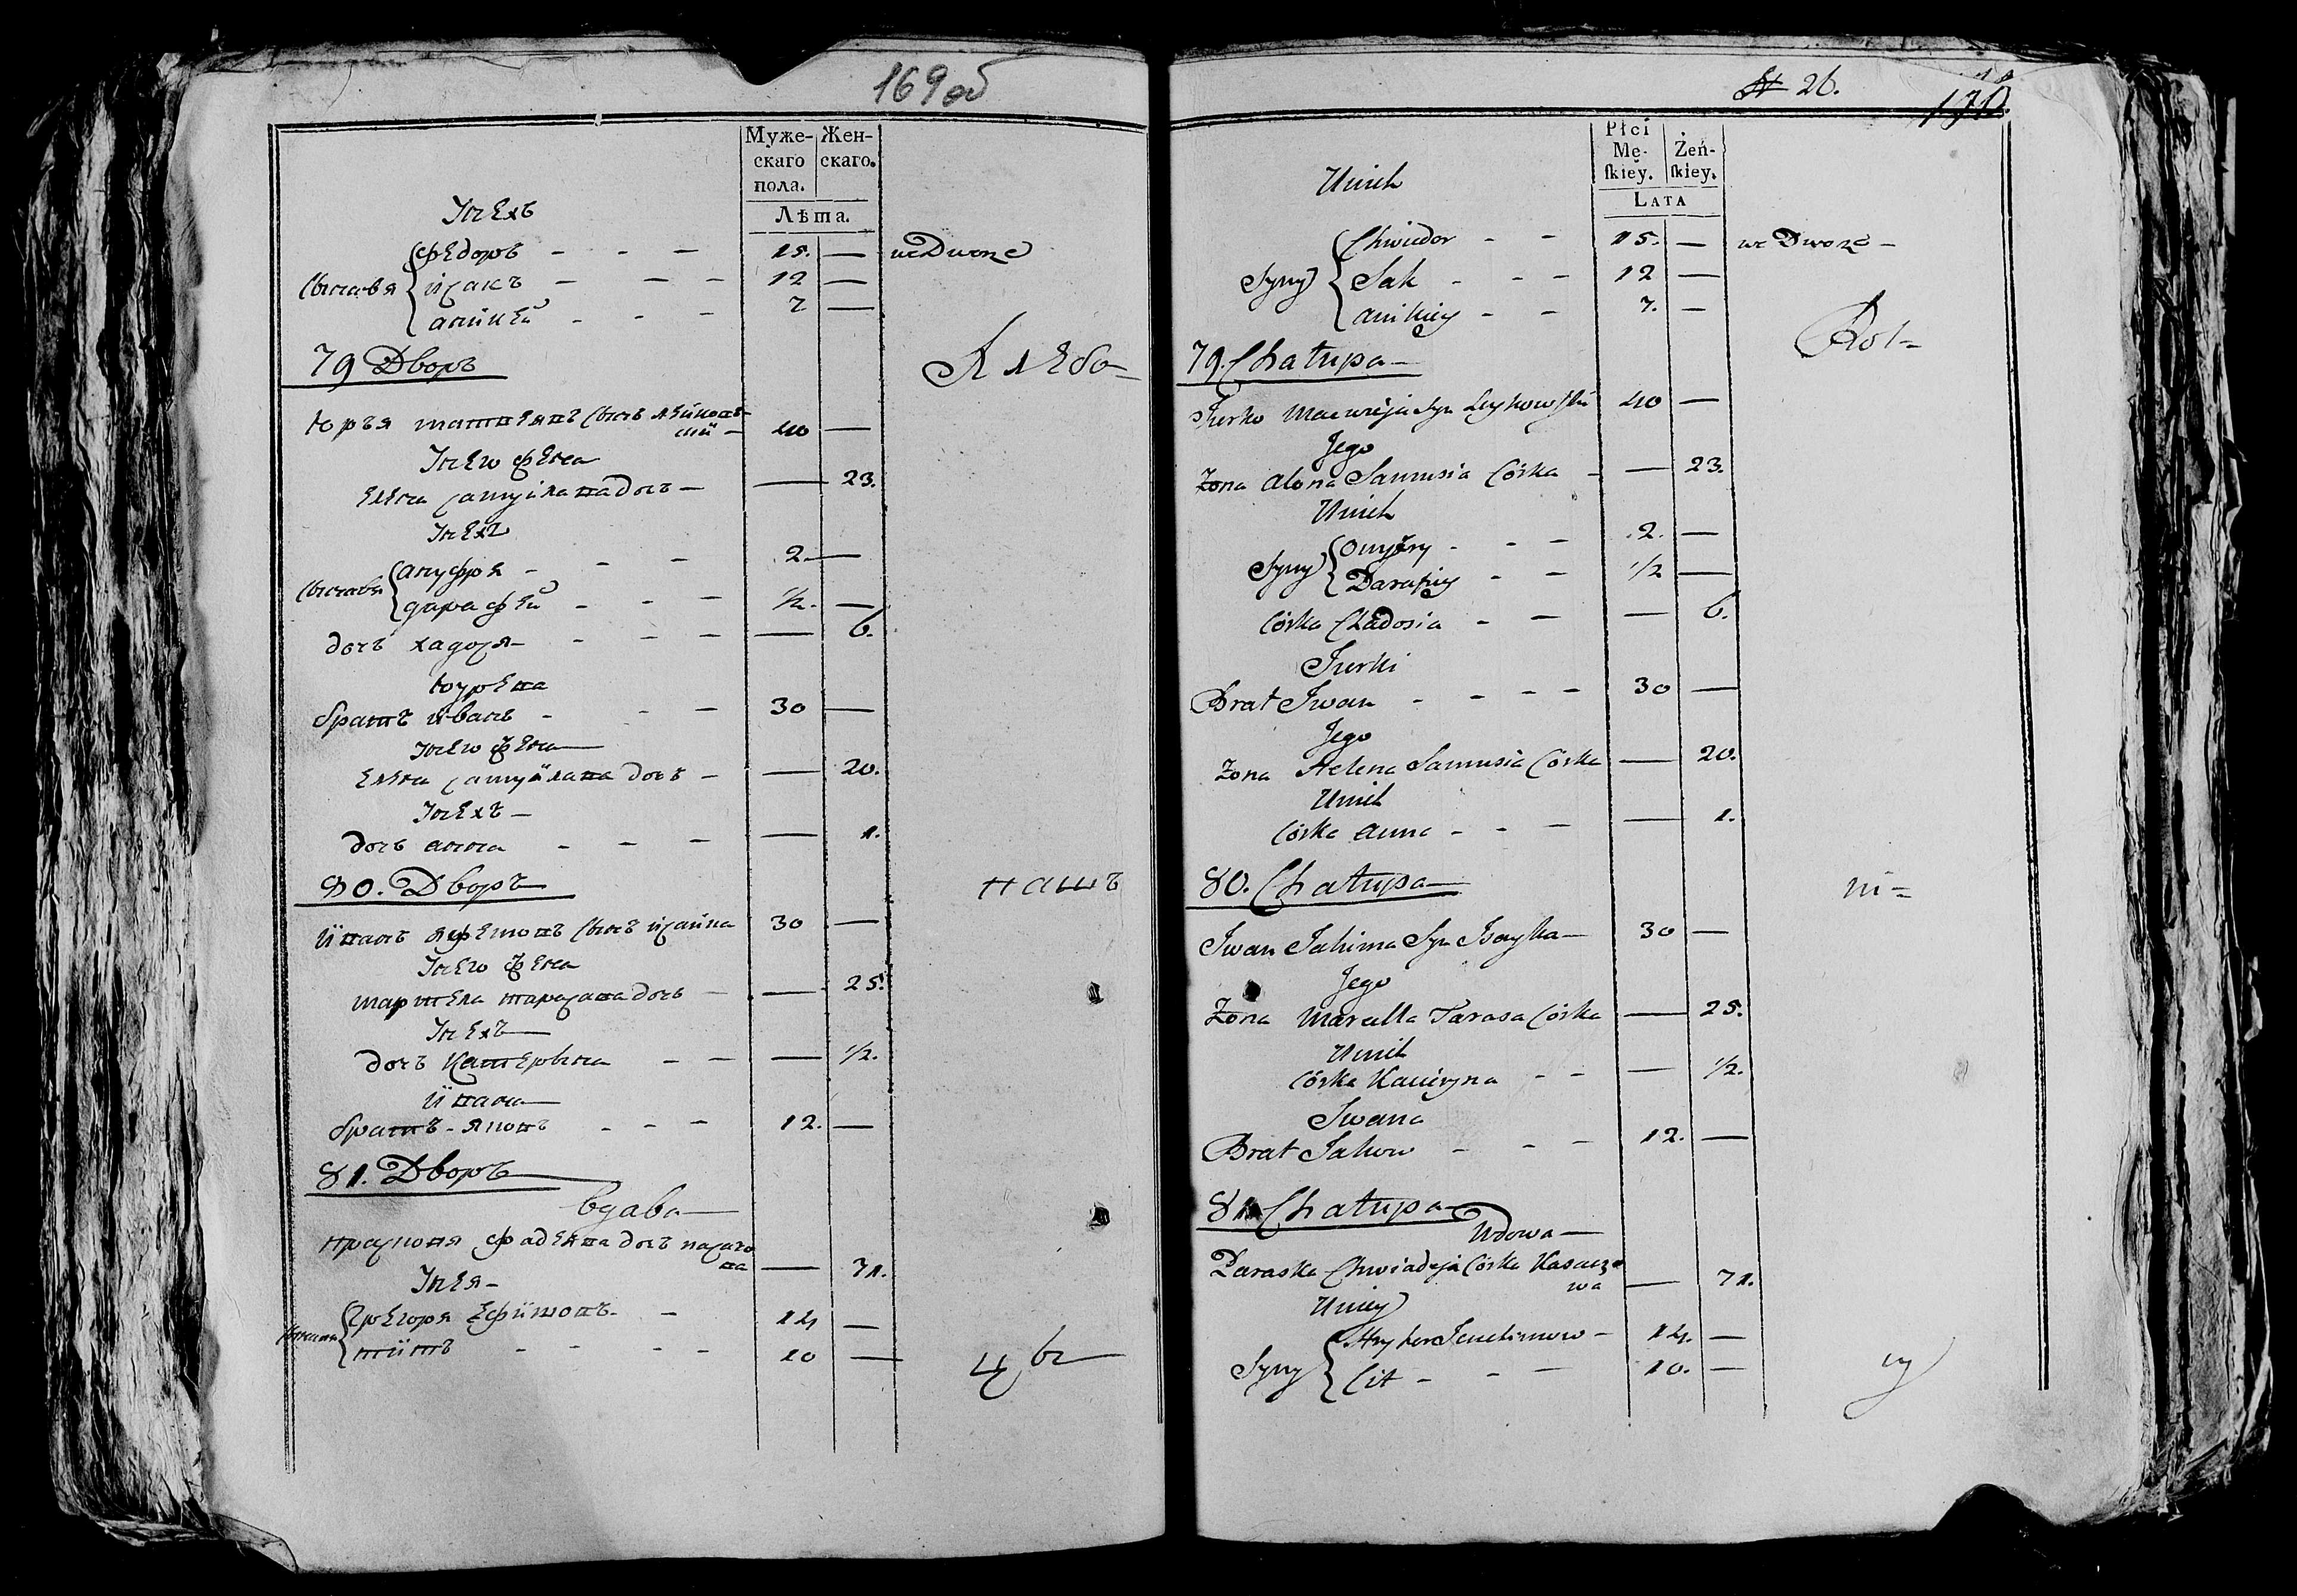 169 об
Муже-
скаго
пола.
Жен-
скаго.
Лѣта.
Унехъ
Сыновья
Федоръ - - - 15. —
we Dworze
исакъ - - - 12 —
аникѣй - - - 7 —
79 Дворъ
Хлебо-
Юрья матвеявъ сынъ лейковъ-
ски - 40 —
Унего жена
елена самуйлава дочъ - — 23.
Унехъ
Сыновья
ануфря - - - 2. —
дарафей - - - ½. —
дочъ хадося - - - — 6.
Юрьева
братъ иванъ - - - 30 —
Унего жена
елена самуйлава дочъ - — 20.
Унехъ -
дочъ анна - - - — 1.
80. Дворъ
пашъ
Иванъ яфемовъ сынъ исайка 30 —
Унего жена
мартела тарасава дочъ - — 25.
Унехъ
дочъ Катерына - - — ½.
Ивана
братъ - яковъ - - - 12. —
81. Дворъ
вдава
прасковя фадеява дочъ касачо
ва — 71.
Унея -
Сыновья
грегоря Ефимовъ - - 14 —
титъ - - - - 10 —
цы
N 26.
170.
Płci
Mę-
ſkiey.
Żeń-
ſkiey.
LATA
Unich
Syny
Chwiedor - - 15. —
we Dworze -
Sak - - - 12 —
Anikiey - - 7. —
Rol=
79. Chałupa
Jurko Macwieja Syn Leykowski 40 —
Jego
Żona Alona Samusia Córka - — 23.
Unich
Syny
Onufry - - - 2. —
Darafiey - - ½ —
Córka Chadosia - - — 6.
Jurki
Brat Iwan - - - - 30 —
Jego
Żona Helena Samusia Córka — 20.
Unich
Córka Anna - - - — 1.
80. Chałupa
ni=
Iwan Jachima Syn Isayka - 30 —
Jego
Żona Marcella Tarasa Córka — 25.
Unich
Córka Kacieryna - - — ½.
Iwana
Brat Jakow - - - 12. —
81 Chałupa
Wdowa
Paraska Chwiadeja Córka Kasacze
wa — 71.
Uniey
Syny
Hryhor Jeuchimow - 14. —
Cit - - - 10. —
cy